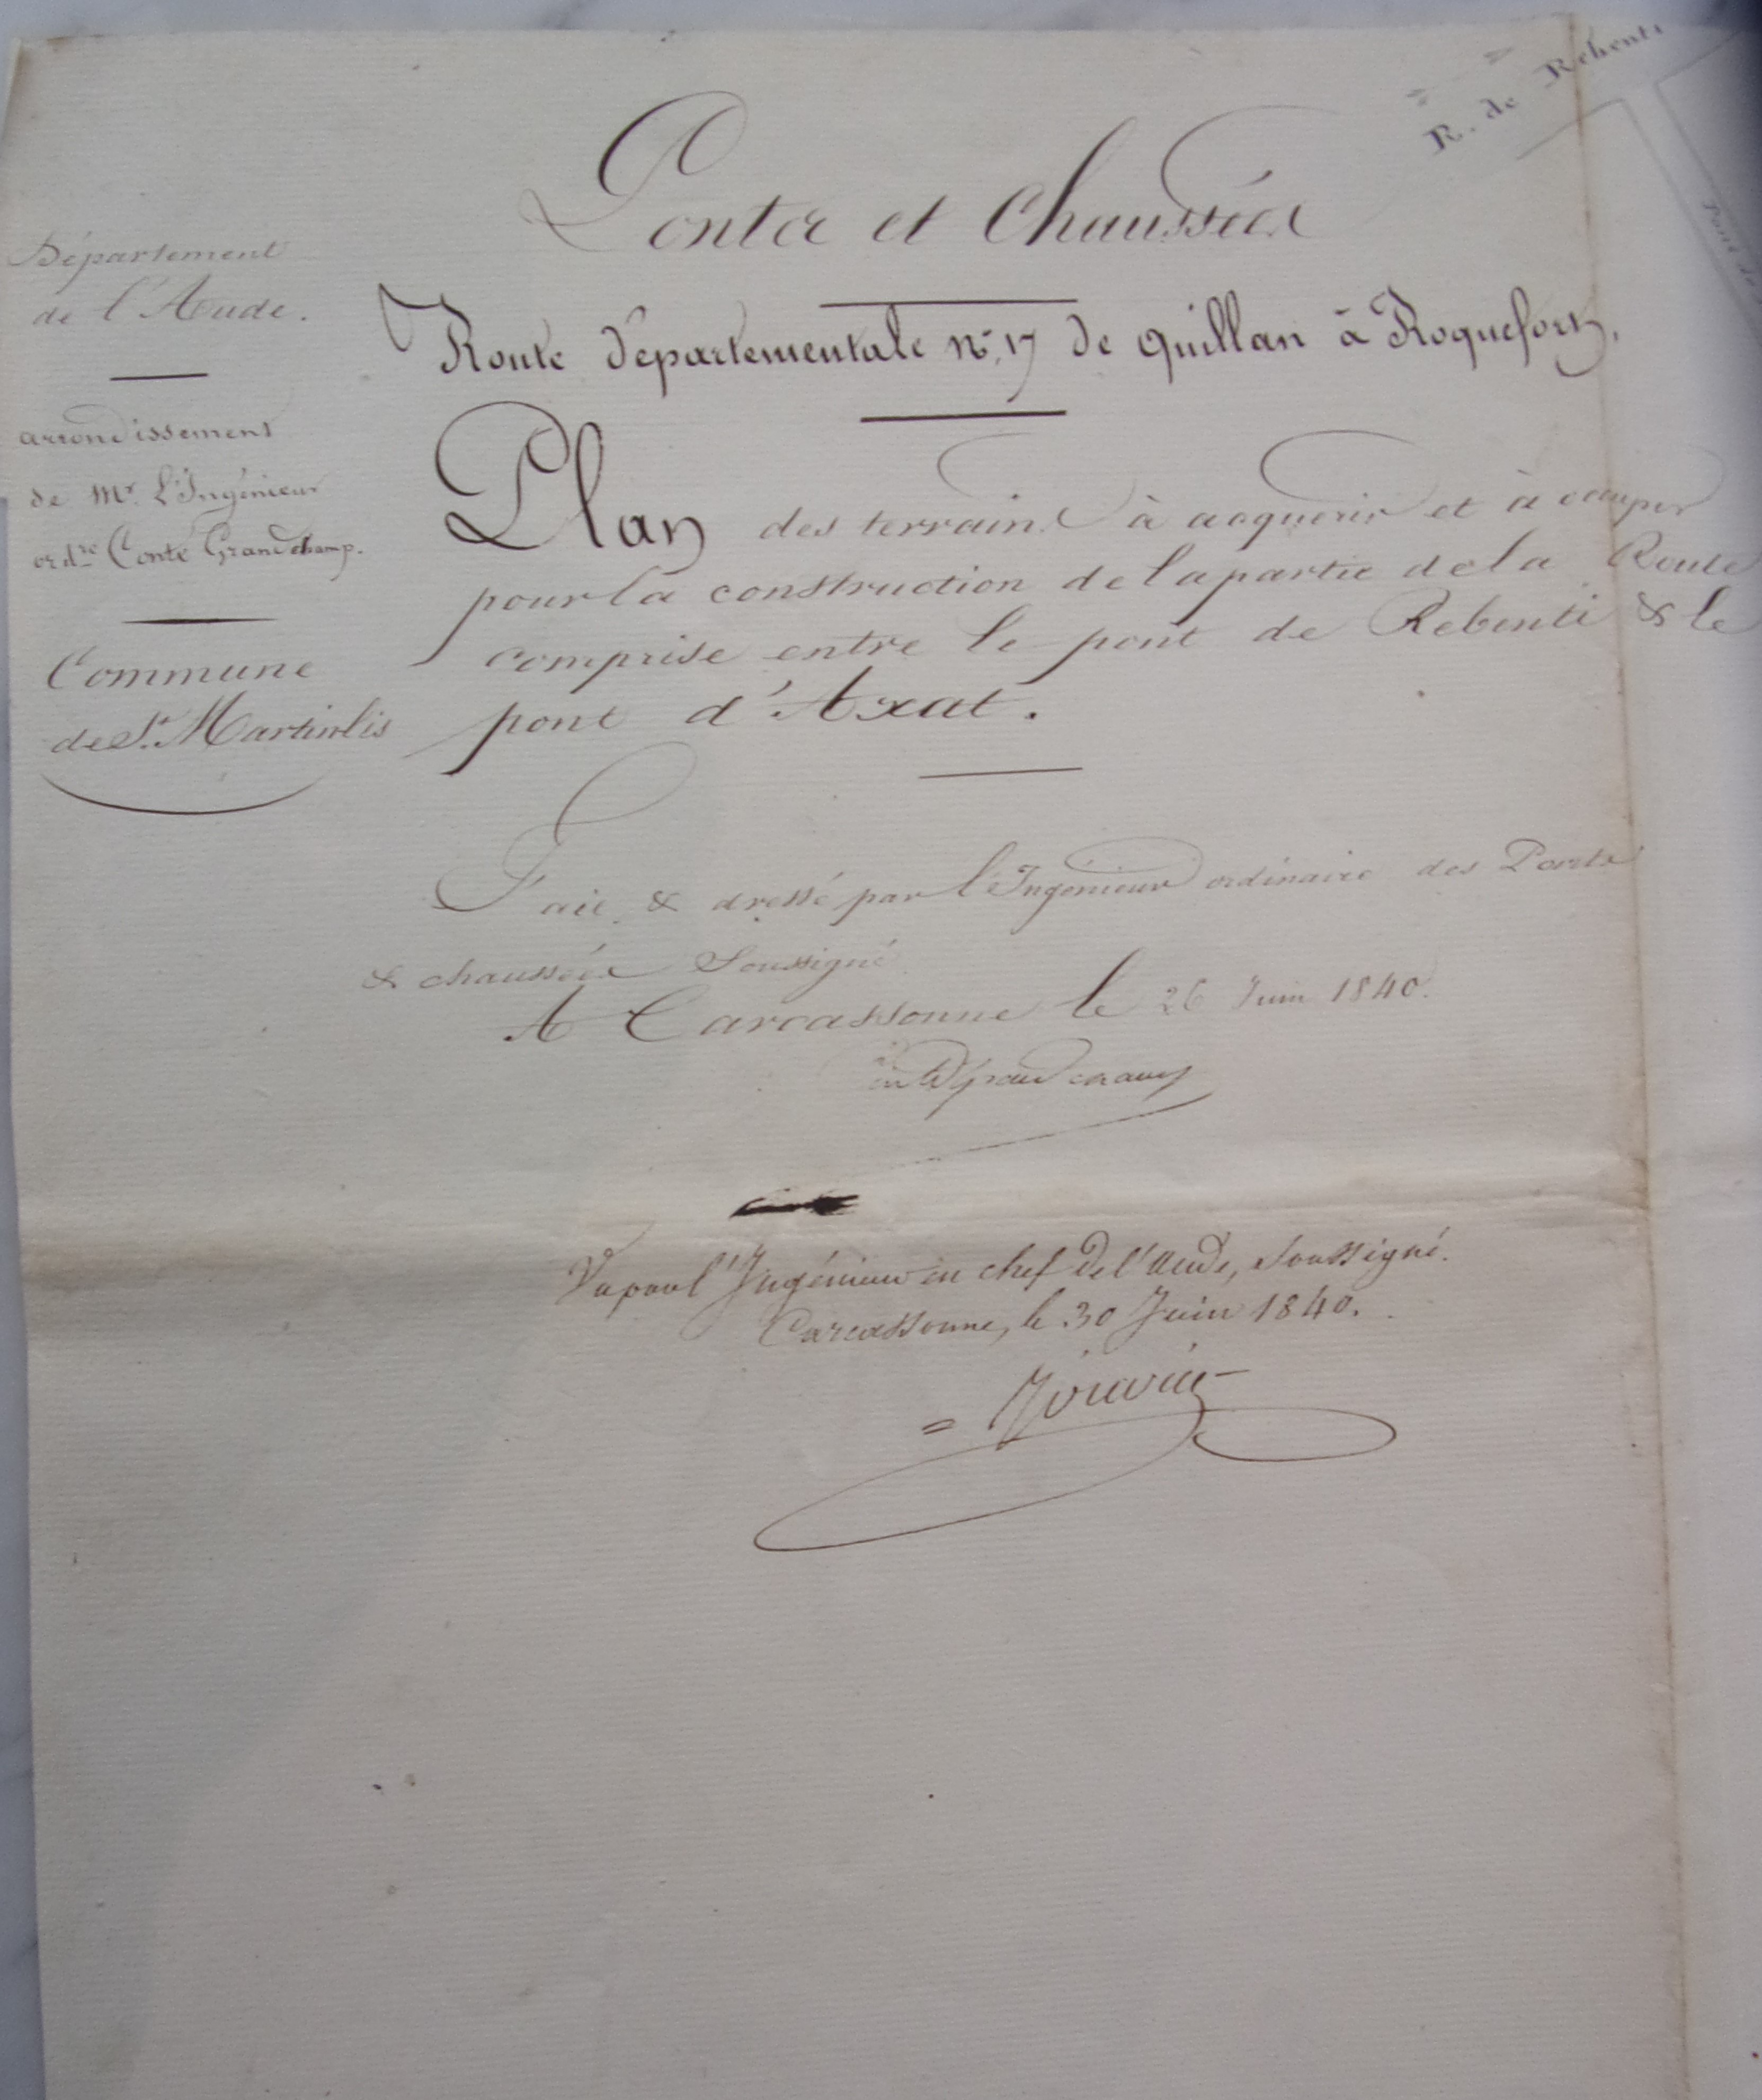 Ponts et Chaussées
Département
de l'Aude.
Route départementale n° 17 de Quillan à Roquefort.
arrondissement
de Mr. L'Ingénieur
ordre Conte Grandchamp.
Commune
de St. Martin lis
Plan des terrains à acquérir et à occuper
pour la construction de la partie de la Route
comprise entre le pont de Rebenti & le
pont d'Axat.
Fait & dressé par l'Ingénieur ordinaire des Ponts
& chaussées Soussigné
A Carcassonne le 26 Juin 1840.
Conte Grandchamp
Vu par l'Ingénieur en chef de l'Aude, soussigné.
Carcassonne, le 30 Juin 1840.
R. de Rebenti
Pont de